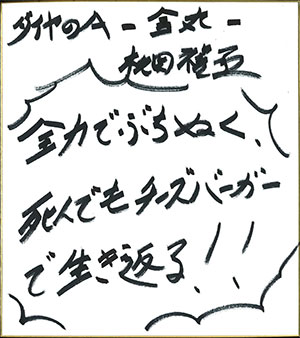 ダイヤのA-金丸-
松田健一郎
全力でぶちぬく、
死んでもチーズバーガー
で生き返る!!